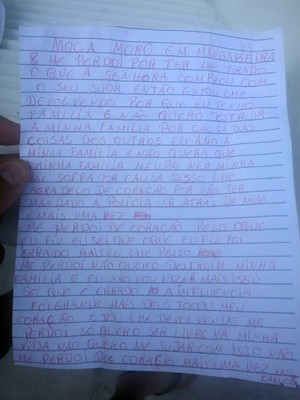 MOÇA MORO EM MANGABEIRA
& ME PERDOI POR TER LHE TIRADO
O QUE A SENHORA COMPROU COM
O SEU SUOR ENTÃO ESTOU LHE
DEVOLVENDO POR QUE EU TENHO
FAMILIA E NÃO QUERO DESTRUIR
A MINHA FAMILIA POR CAUSA DAS
COISAS DOS OUTROS EU AMO A
MINHA FAMILIA E NÃO QUERO QUE
MINHA FAMILIA NEM TAL NEM MINHA
ME SOFRA POR CAUSA DISSO LHE
AGRADEÇO DE CORAÇÃO POR NÃO TER
MANDADO A POLICIA IR ATRAS DE MIM
E MAIS UMA VEZ
ME PERDOI DE CORAÇÃO PELO QUE
EU FIZ EU SEI QUE O QUE EU FIZ FOI
ERRADO MAIS EU LHE PESSO
ME PERDOI NÃO QUERO DESTRUIR MINHA
FAMILIA E EU NÃO VOU FAZER MAIS ISSO
SEI QUE E ERRADO A INFLUENCIA
FOI GRANDE MAIS DEUS TOCOU MEU
CORAÇÃO E TOU LHE DEVOLVENDO ME
PERDOI SÓ QUERO SER LIVRE NA MINHA
VIDA NÃO QUERO ME SUJAR COM ISSO NÃO
ME PERDOI DE CORAÇÃO MAIS UMA VEZ